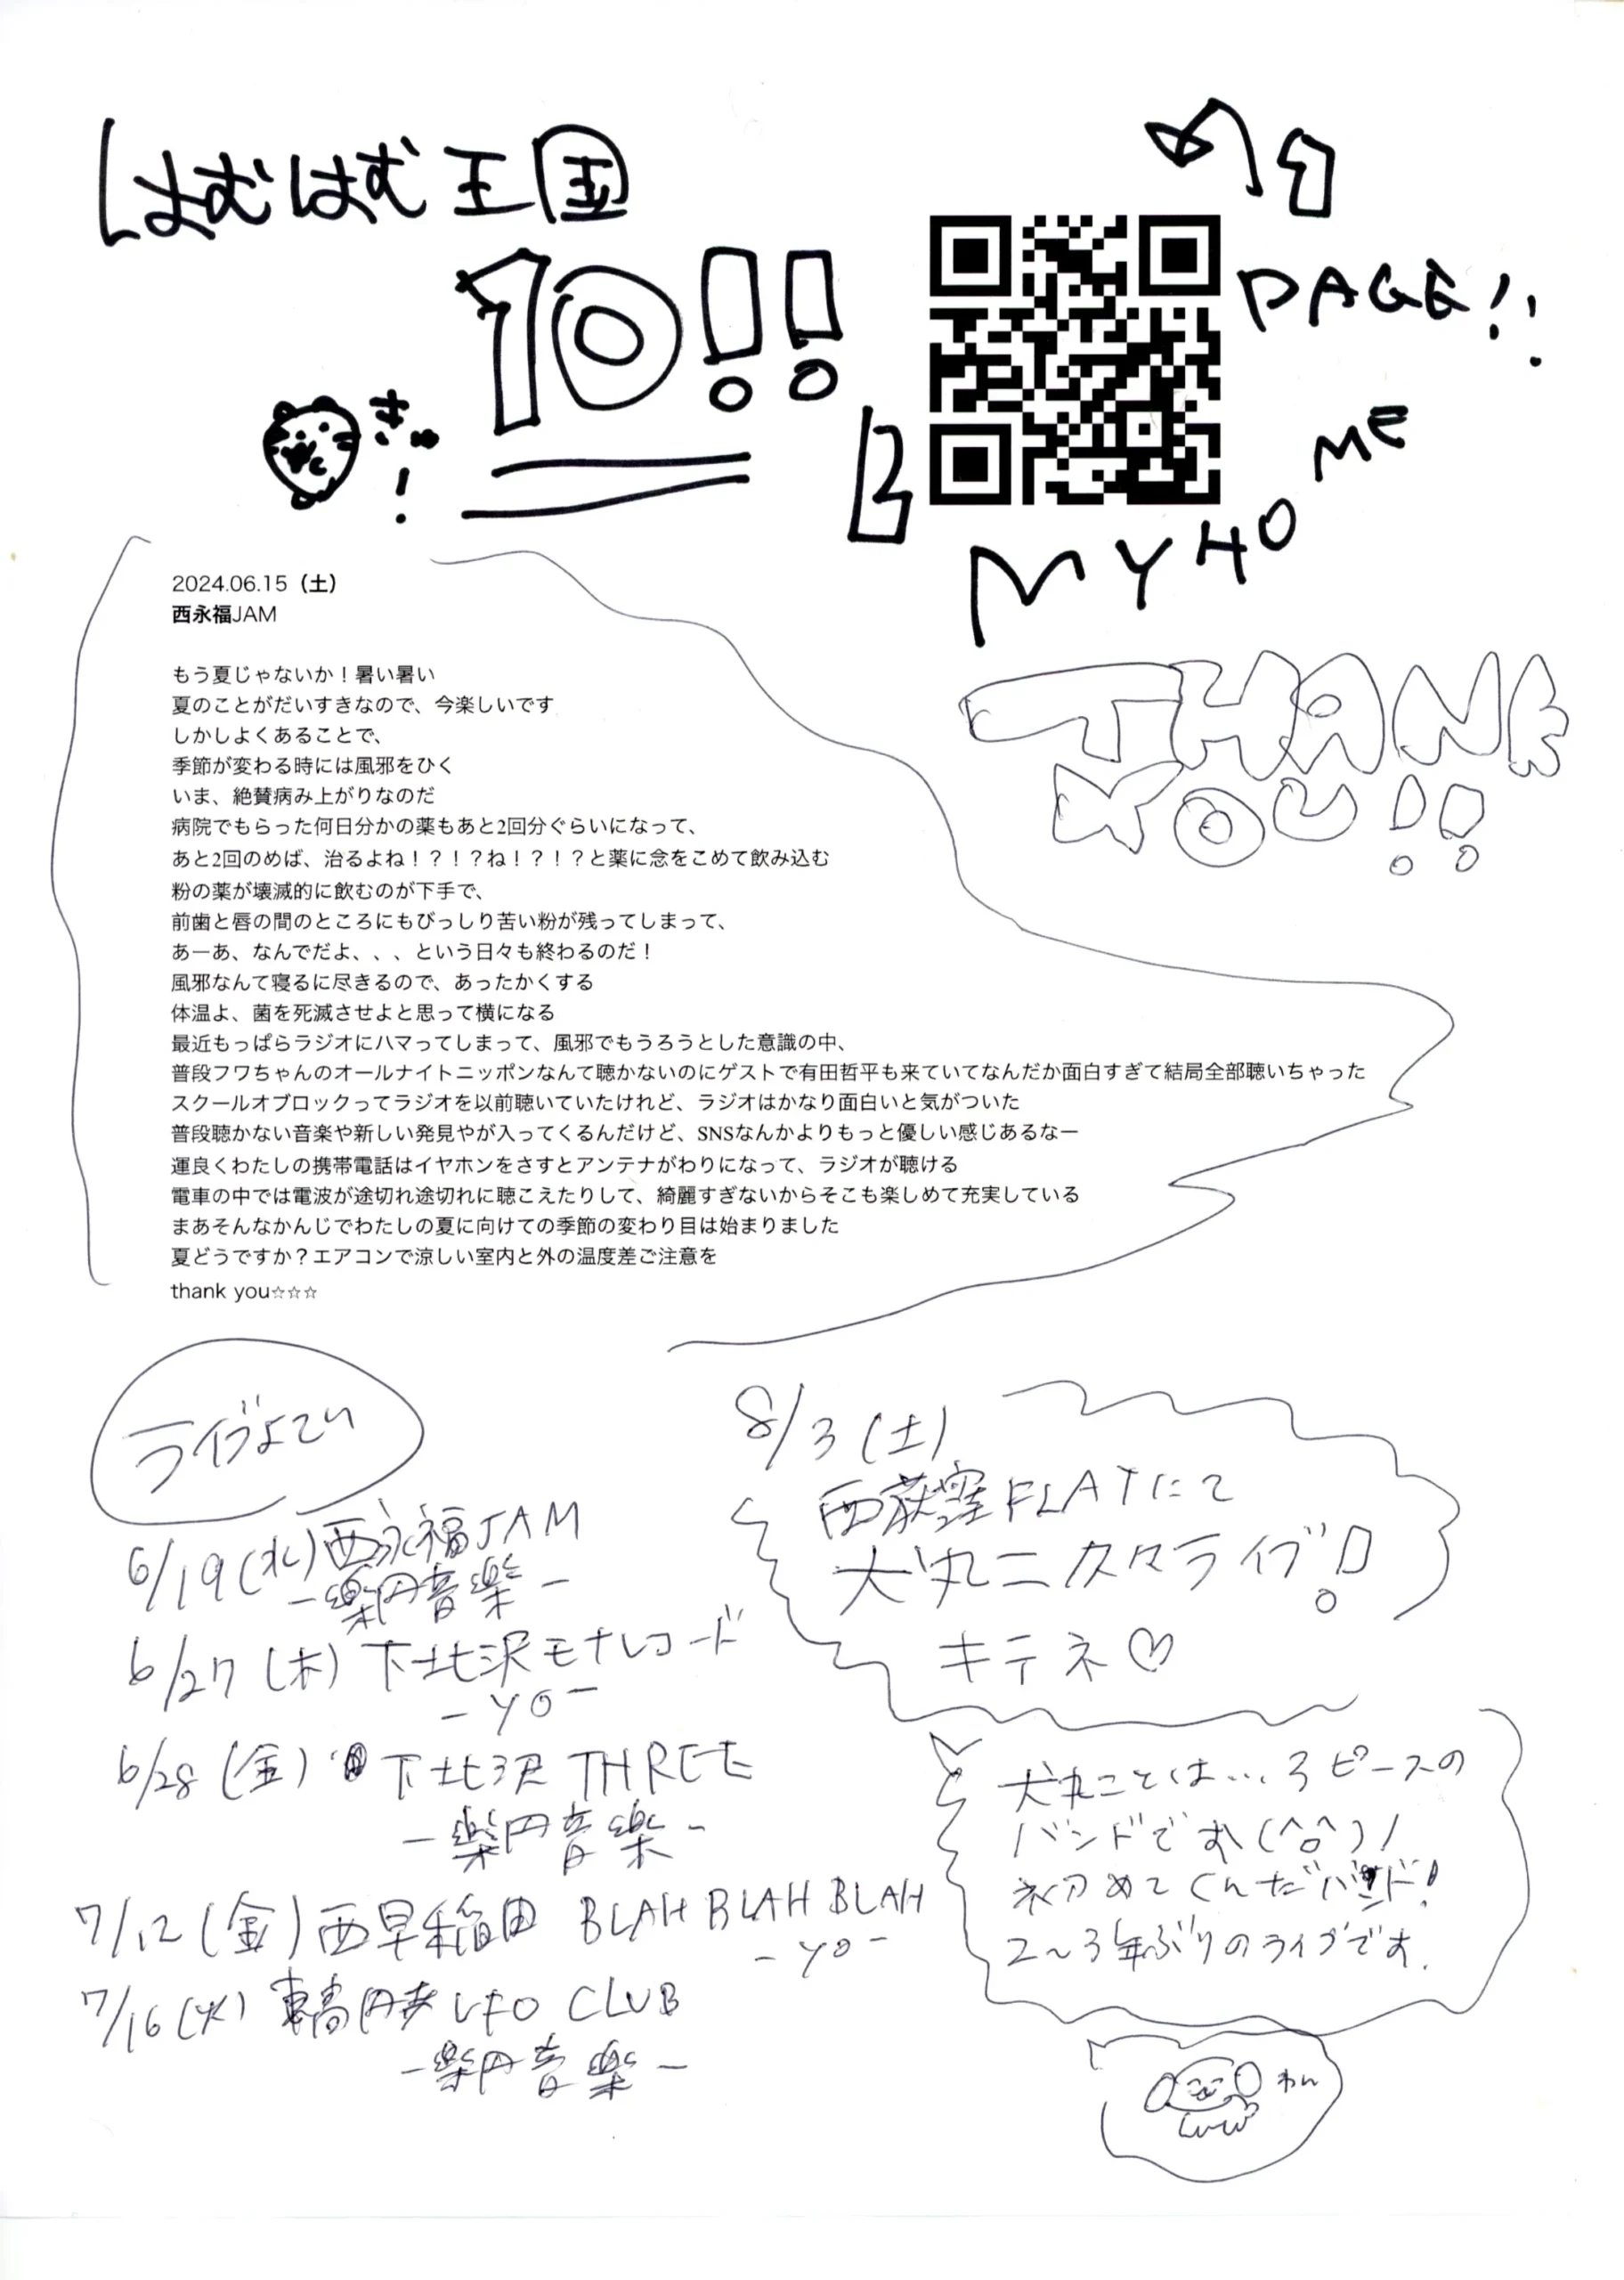 はむはむ王国
10!!
きゅ!
MY HOME PAGE!!
THANK YOU!!
2024.06.15（土）
西永福JAM
もう夏じゃないか！暑い暑い
夏のことがだいすきなので、今楽しいです
しかしよくあることで、
季節が変わる時には風邪をひく
いま、絶賛病み上がりなのだ
病院でもらった何日分かの薬もあと2回分ぐらいになって、
あと2回のめば、治るよね！？！？ね！？！？と薬に念をこめて飲み込む
粉の薬が壊滅的に飲むのが下手で、
前歯と唇の間のところにもびっしり苦い粉が残ってしまって、
あーあ、なんでだよ、、、という日々も終わるのだ！
風邪なんて寝るに尽きるので、あったかくする
体温よ、菌を死滅させよと思って横になる
最近もっぱらラジオにハマってしまって、風邪でもうろうとした意識の中、
普段フワちゃんのオールナイトニッポンなんて聴かないのにゲストで有田哲平も来ていてなんだか面白すぎて結局全部聴いちゃった
スクールオブロックってラジオを以前聴いていたけれど、ラジオはかなり面白いと気がついた
普段聴かない音楽や新しい発見やが入ってくるんだけど、SNSなんかよりもっと優しい感じあるなー
運良くわたしの携帯電話はイヤホンをさすとアンテナがわりになって、ラジオが聴ける
電車の中では電波が途切れ途切れに聴こえたりして、綺麗すぎないからそこも楽しめて充実している
まあそんなかんじでわたしの夏に向けての季節の変わり目は始まりました
夏どうですか？エアコンで涼しい室内と外の温度差ご注意を
thank you☆☆☆
ライブよてい
6/19(水)西永福JAM
-楽円音楽-
6/27(木)下北沢モナレコード
-yo-
6/28(金)下北沢THREE
-楽円音楽-
7/12(金)西早稲田 BLAH BLAH BLAH
-yo-
7/16(火)東高円寺UFO CLUB
-楽円音楽-
8/3(土)
西荻窪FLATにて
犬丸ニ久々ライブ!
キテネ♡
犬丸ことは...3ピースの
バンドです(^o^)/
初めてくんだバンド!
2〜3年ぶりのライブです.
わん